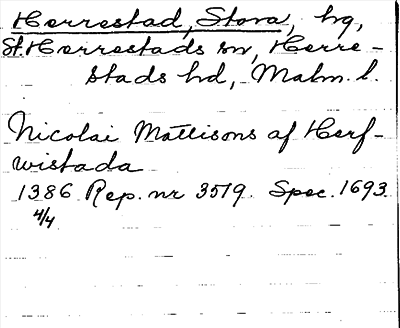 Herrestad, Stora, hg,
St. Herrestads sn, Herre-
stads hd, Malm. l.
Nicolai Mattisons af Herf-
wistada
1386 Rep. nr 3519. Spec. 1693
4/4